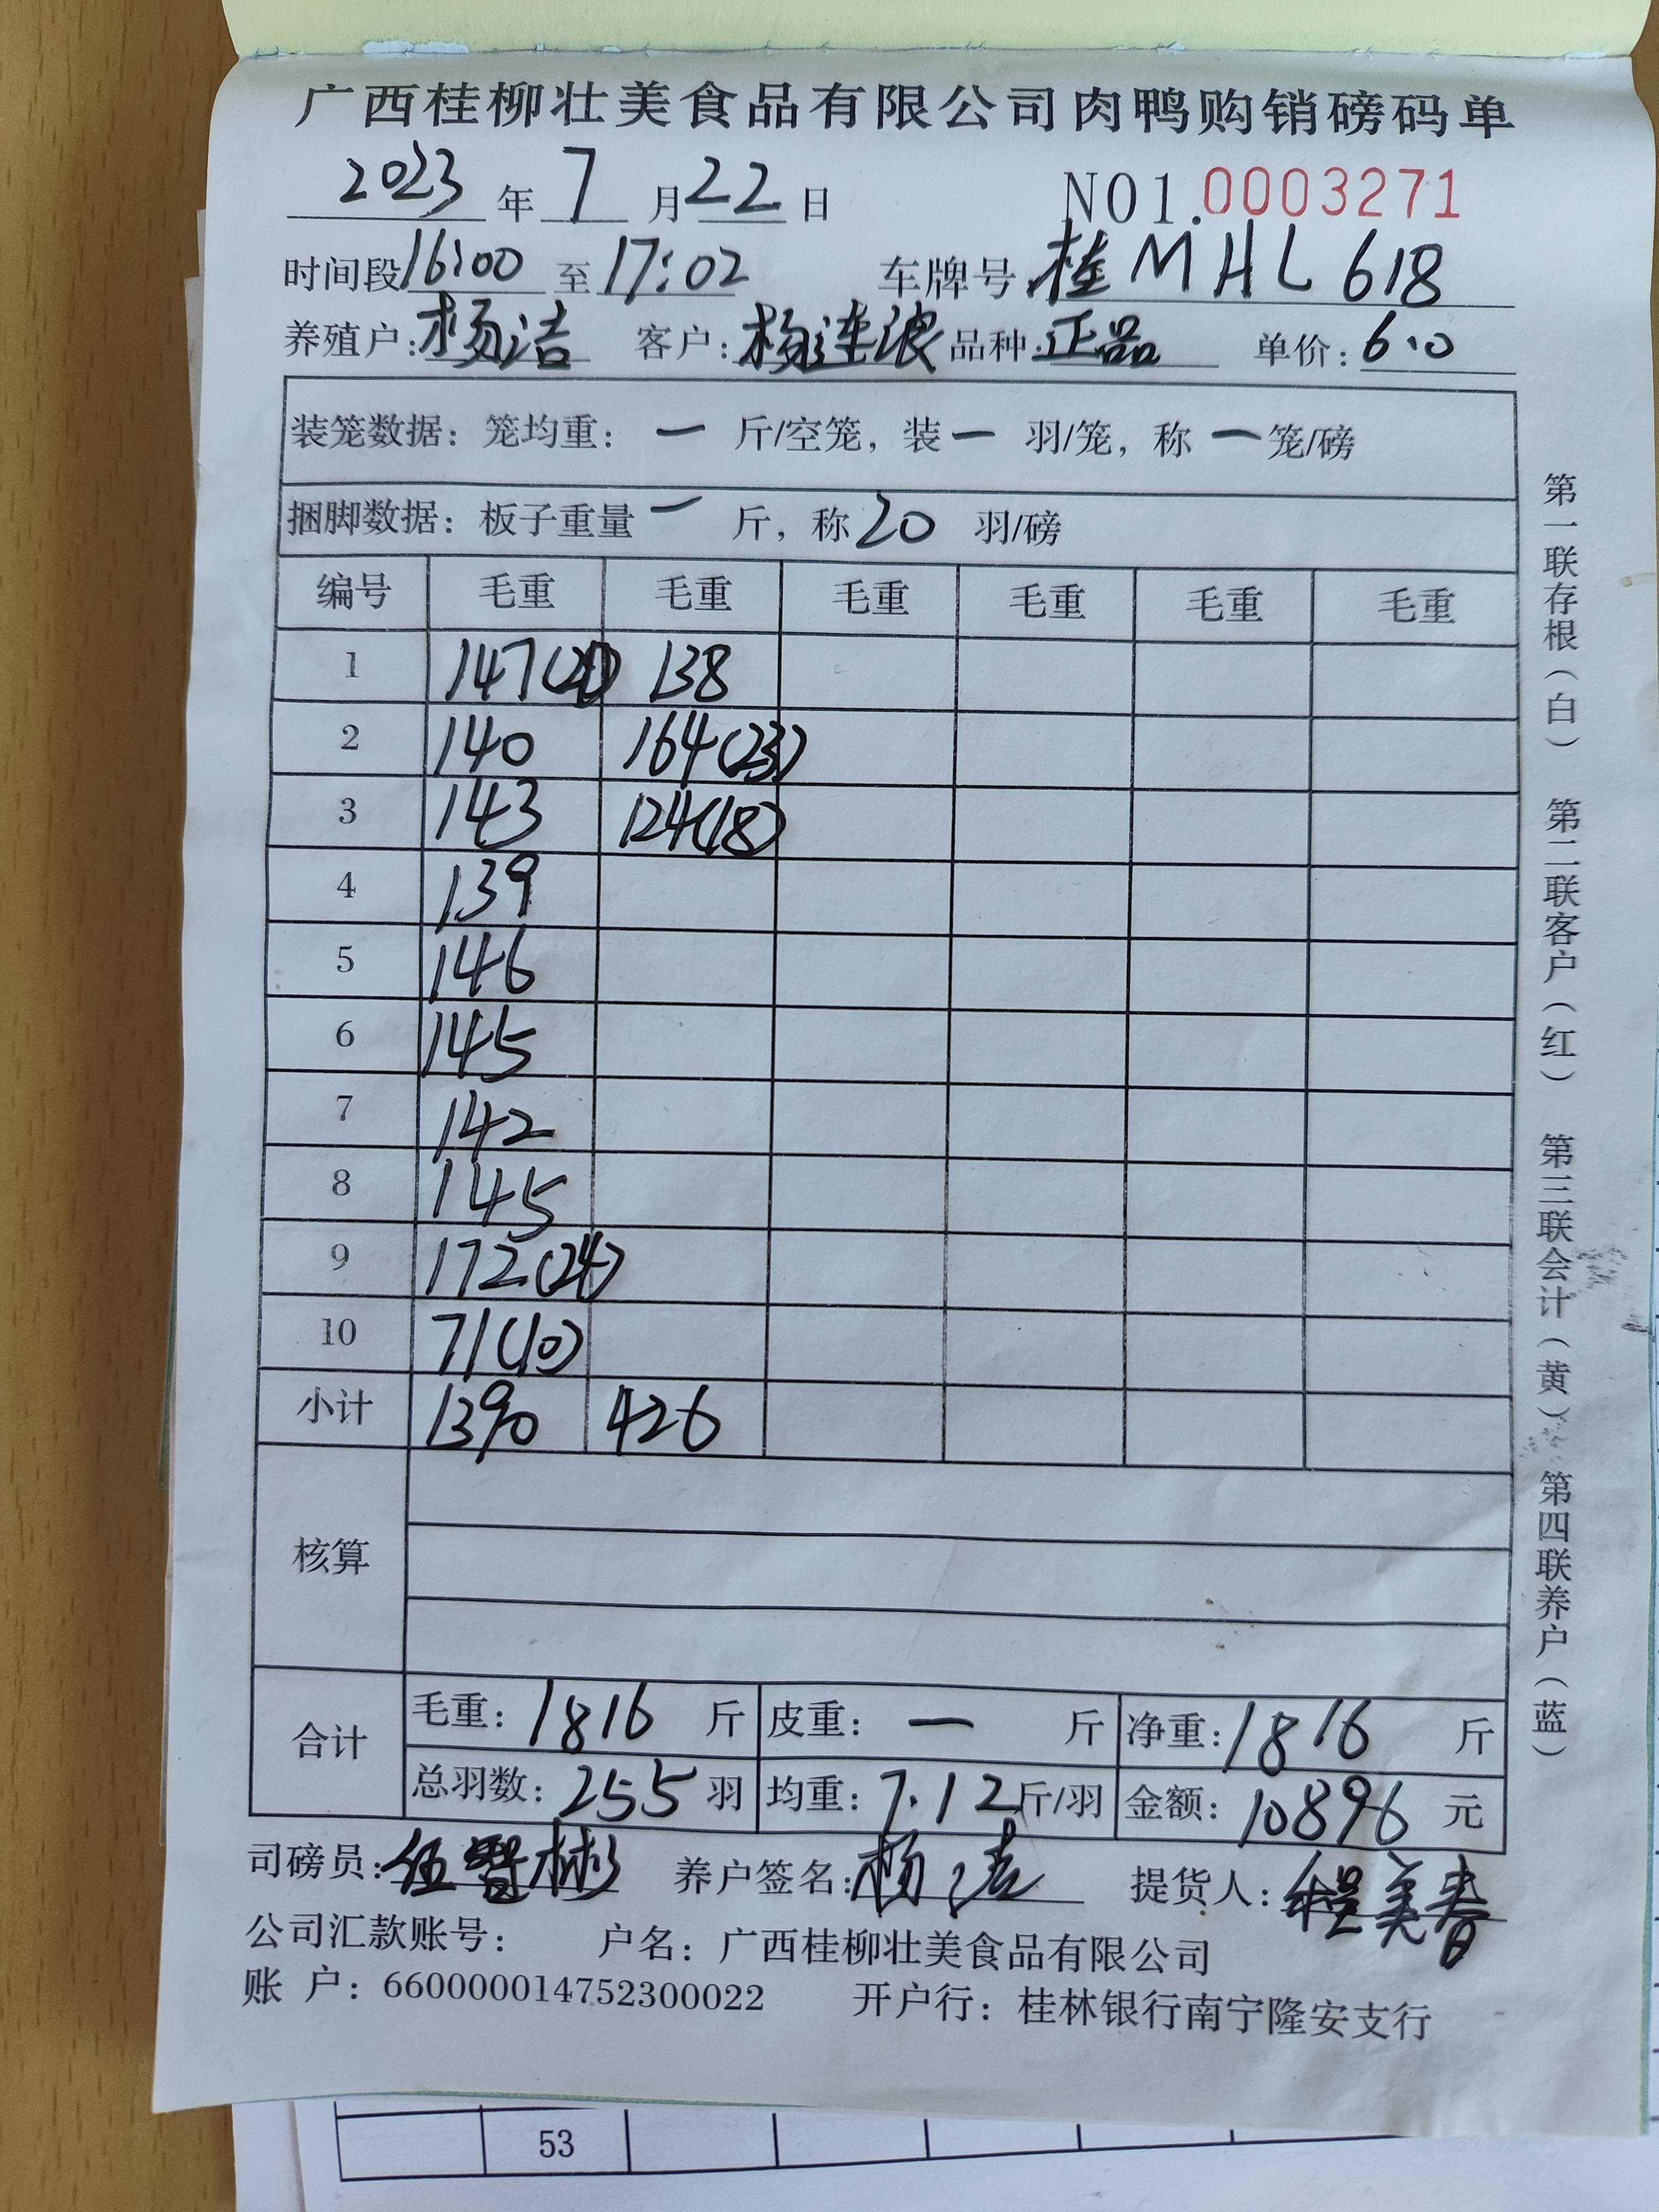 广西桂柳壮美食品有限公司肉鸭购销磅码单
2023 年 7 月 22 日 NO1.0003271
时间段 16:00 至 17:02 车牌号 桂MHL618
养殖户: 杨洁 客户: 杨连浪 品种: 正品 单价: 6.0
装笼数据: 笼均重: 一 斤/空笼, 装 一 羽/笼, 称 一 笼/磅
捆脚数据: 板子重量 一 斤, 称 20 羽/磅
编号 毛重 毛重 毛重 毛重 毛重 毛重
1 147(21) 138
2 140 164(23)
3 143 124(18)
4 139
5 146
6 145
7 142
8 145
9 172(24)
10 71(10)
小计 1390 426
核算
合计 毛重: 1816 斤 皮重: 一 斤 净重: 1816 斤
总羽数: 255 羽 均重: 7.12 斤/羽 金额: 10896 元
司磅员: 伍智彬 养户签名: 杨洁 提货人: 程美春
公司汇款账号: 户名: 广西桂柳壮美食品有限公司
账 户: 660000014752300022 开户行: 桂林银行南宁隆安支行
第一联存根(白) 第二联客户(红) 第三联会计(黄) 第四联养户(蓝)
53